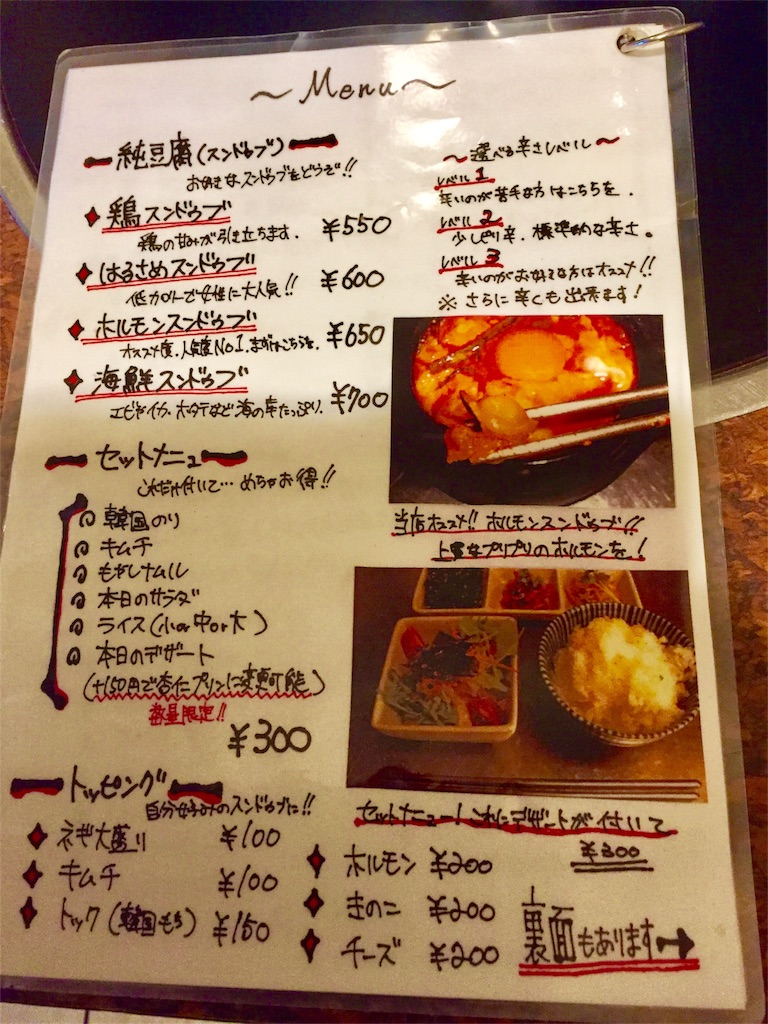 ～Menu～
純豆腐(スンドゥブ)
お好きなスンドゥブをどうぞ!!
鶏スンドゥブ
鶏の甘みが引き立ちます. ¥550
はるさめスンドゥブ
低カロリーで女性に大人気!! ¥600
ホルモンスンドゥブ
オススメ度.人気度No1.まずはこちらを. ¥650
海鮮スンドゥブ
エビやイカ.ホタテなど海の幸たっぷり. ¥700
セットメニュー
これだけ付いて…めちゃお得!!
韓国のり
キムチ
もやしナムル
本日のサラダ
ライス(小or中or大)
本日のデザート
(+150円で杏仁プリンに変更可能)
数量限定!!
¥300
トッピング
自分好みのスンドゥブに!!
ネギ大盛り ¥100
キムチ ¥100
トック(韓国もち) ¥150
～選べる辛さレベル～
レベル1
辛いのが苦手な方はこちらを.
レベル2
少しピリ辛.標準的な辛さ。
レベル3
辛いのがお好きな方はオススメ!!
※さらに辛くも出来ます!
当店オススメ!!ホルモンスンドゥブ!!
上質なプリプリのホルモンを!
セットメニュー!これにデザートが付いて
¥300
ホルモン ¥200
きのこ ¥200
チーズ ¥200
裏面もあります→